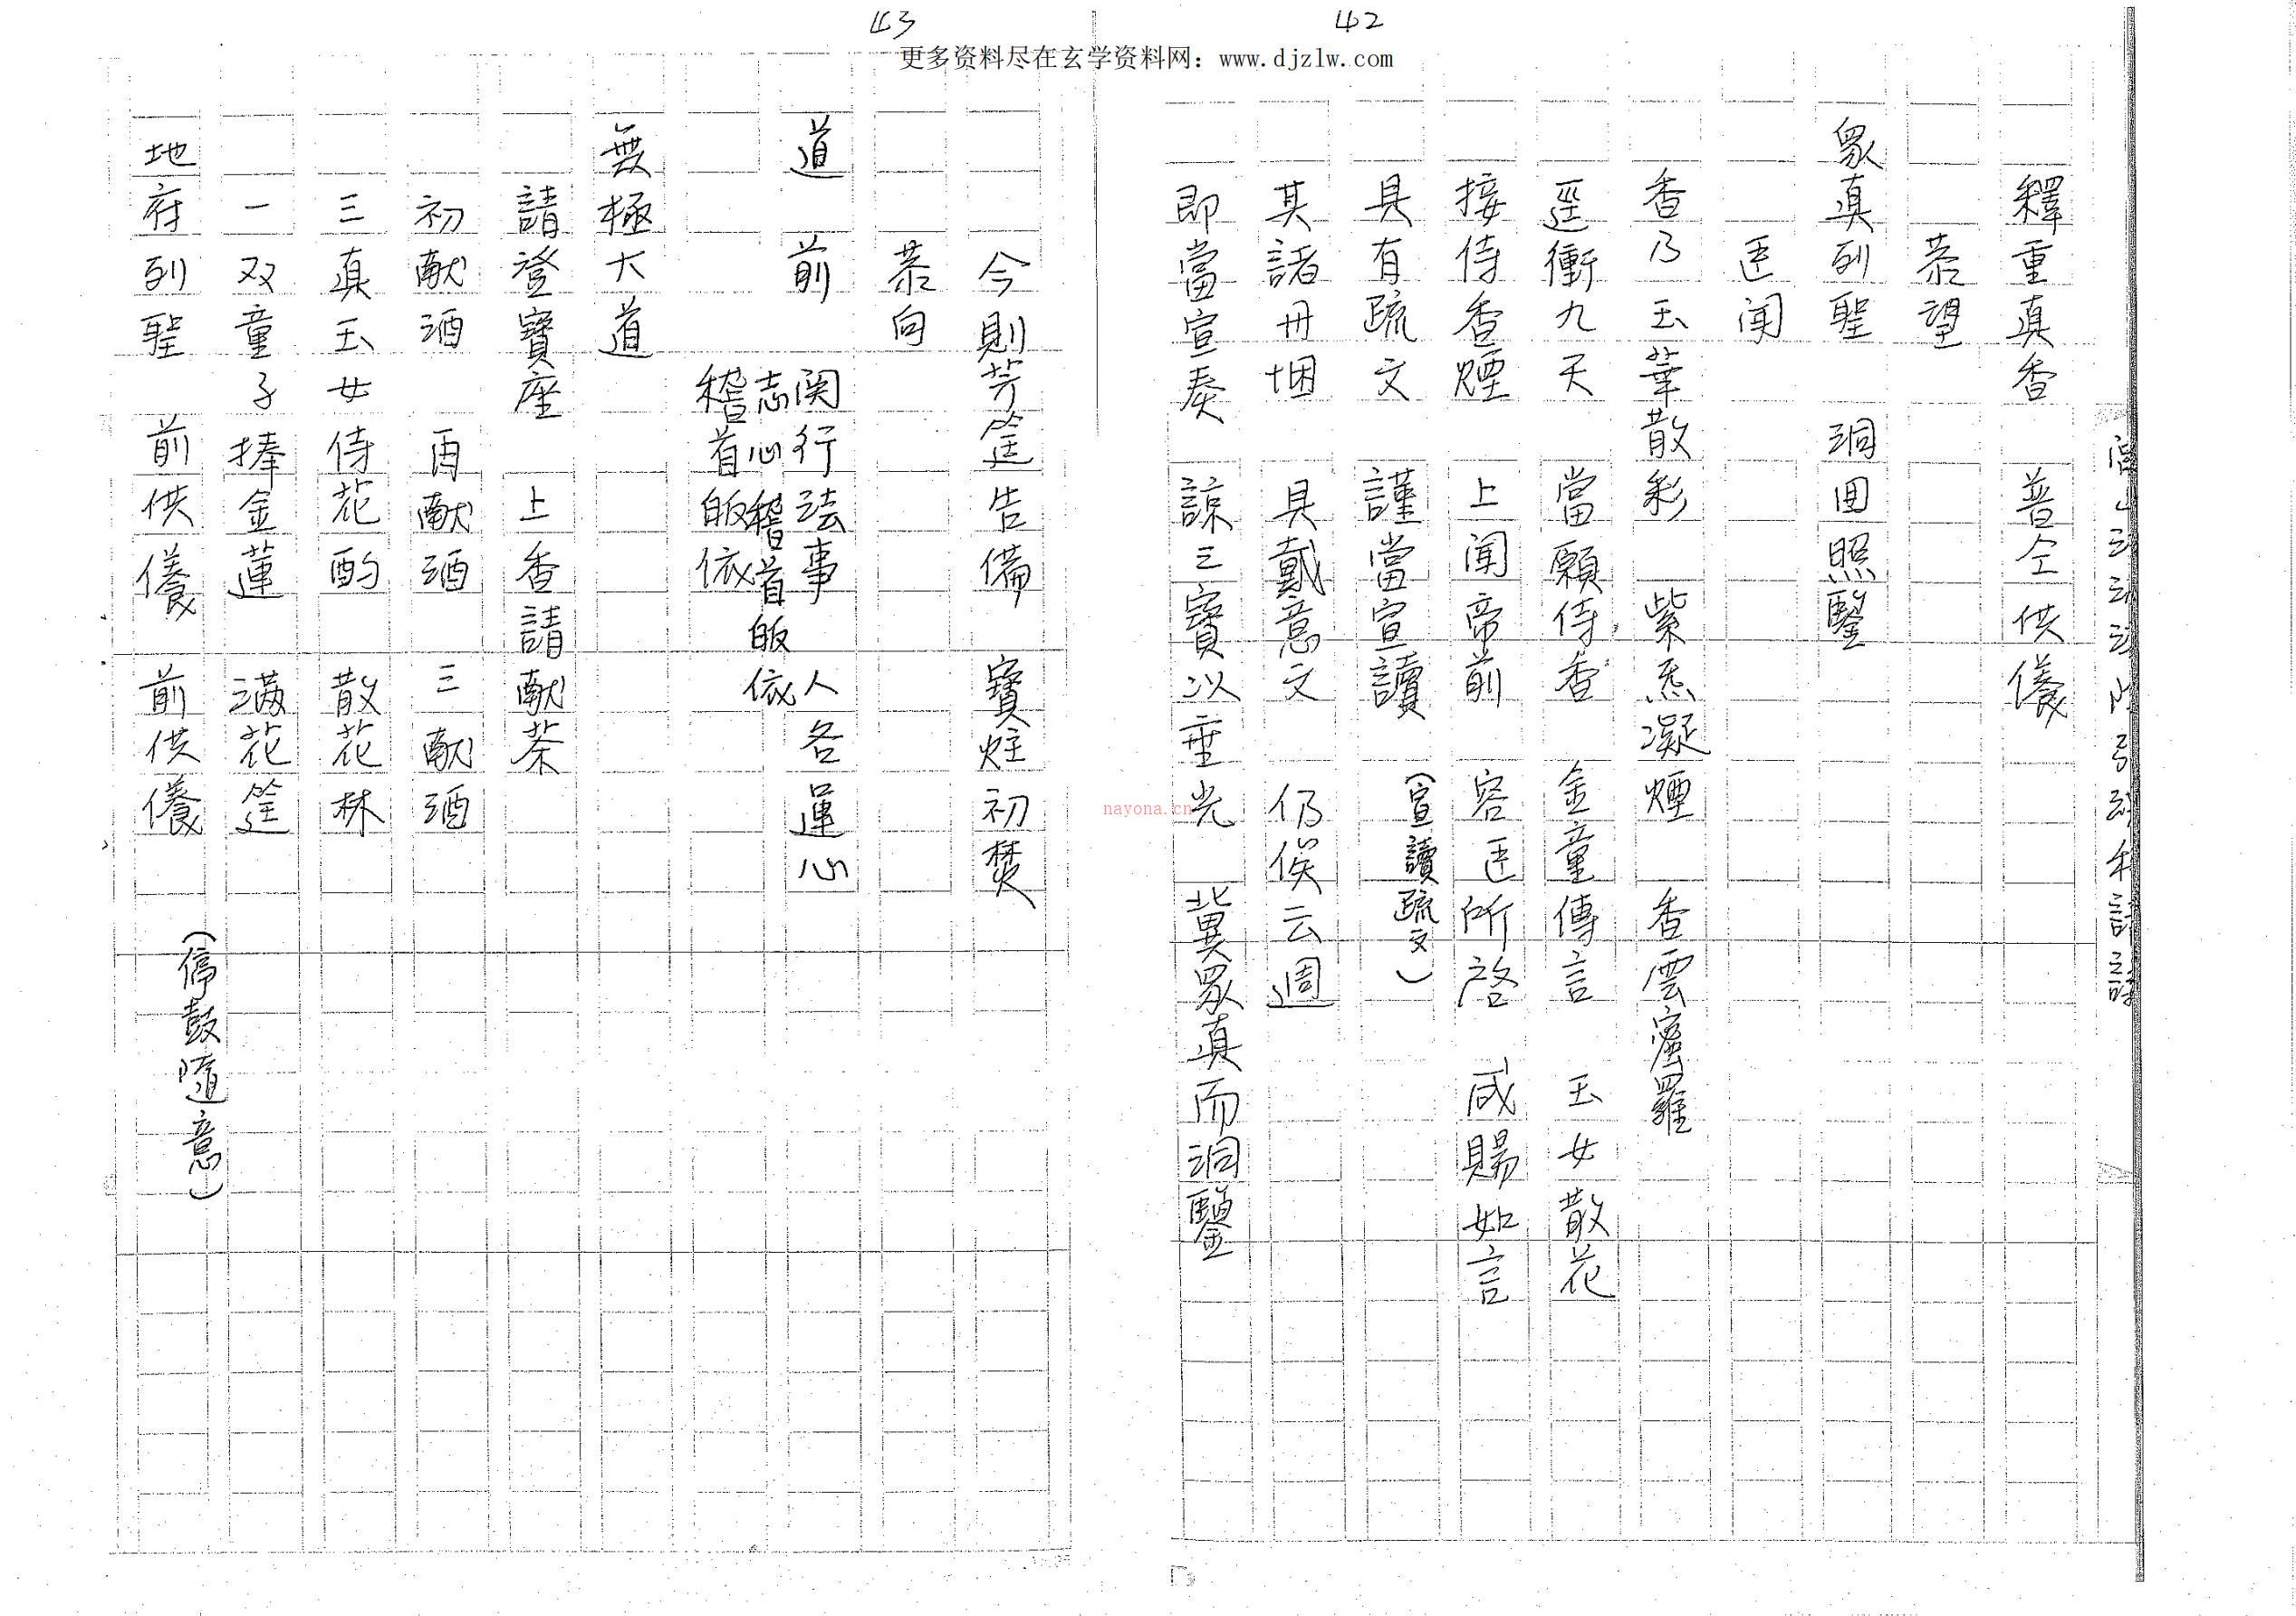 42
43
更多资料尽在玄学资料网：www.djzlw.com
釋重真香　普仝供養
恭望
眾真列聖　洞回照鑒
臣闻
香乃玉華散彩　紫炁凝煙　香雲密羅
逕衝九天　當願侍香　金童傳言　玉女散花
接侍香煙　上闻帝前　容臣所啓　咸賜如言
具有疏文　謹當宣讀　（宣讀疏文）
其諸冊悃　具戴意文　仍俟云週
即當宣奏　諒三寶以垂光　冀眾真而洞鑒
今則芳筵告備　寶炷初焚
恭向
道　前　関行法事　人各運心
志心稽首皈依
稽首皈依
無極大道
請登寶座　上香請献茶
初献酒　再献酒　三献酒
三真玉女侍花酌　散花林
一双童子捧金蓮　满花筵
地府列聖　前供養　前供養
（停鼓隨意）
nayona.cn